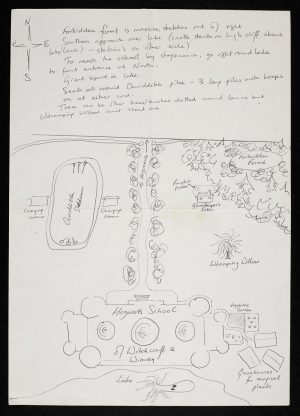 Forbidden forest is massive, stretches out of sight.
Southern approach over lake (castle stands on high cliff above
lake/loch) - station's on other side)
To reach the school by stagecoach, go right round lake
to front entrance at North.
Giant squid in lake.
Seats all around Quidditch pitch - 3 long poles with hoops
on at either end.
There can be other trees/bushes dotted around lawns but
Whomping Willow must stand out.
N
E
S
Forbidden Forest
Quidditch
Stadium
Changing
rooms
Changing
rooms
Pumpkin
Patch
Gamekeeper's
Cabin
Whomping Willow
Hogwarts School
of Witchcraft &
Wizardry
Vegetable
Garden
Greenhouses
for magical
plants
Lake